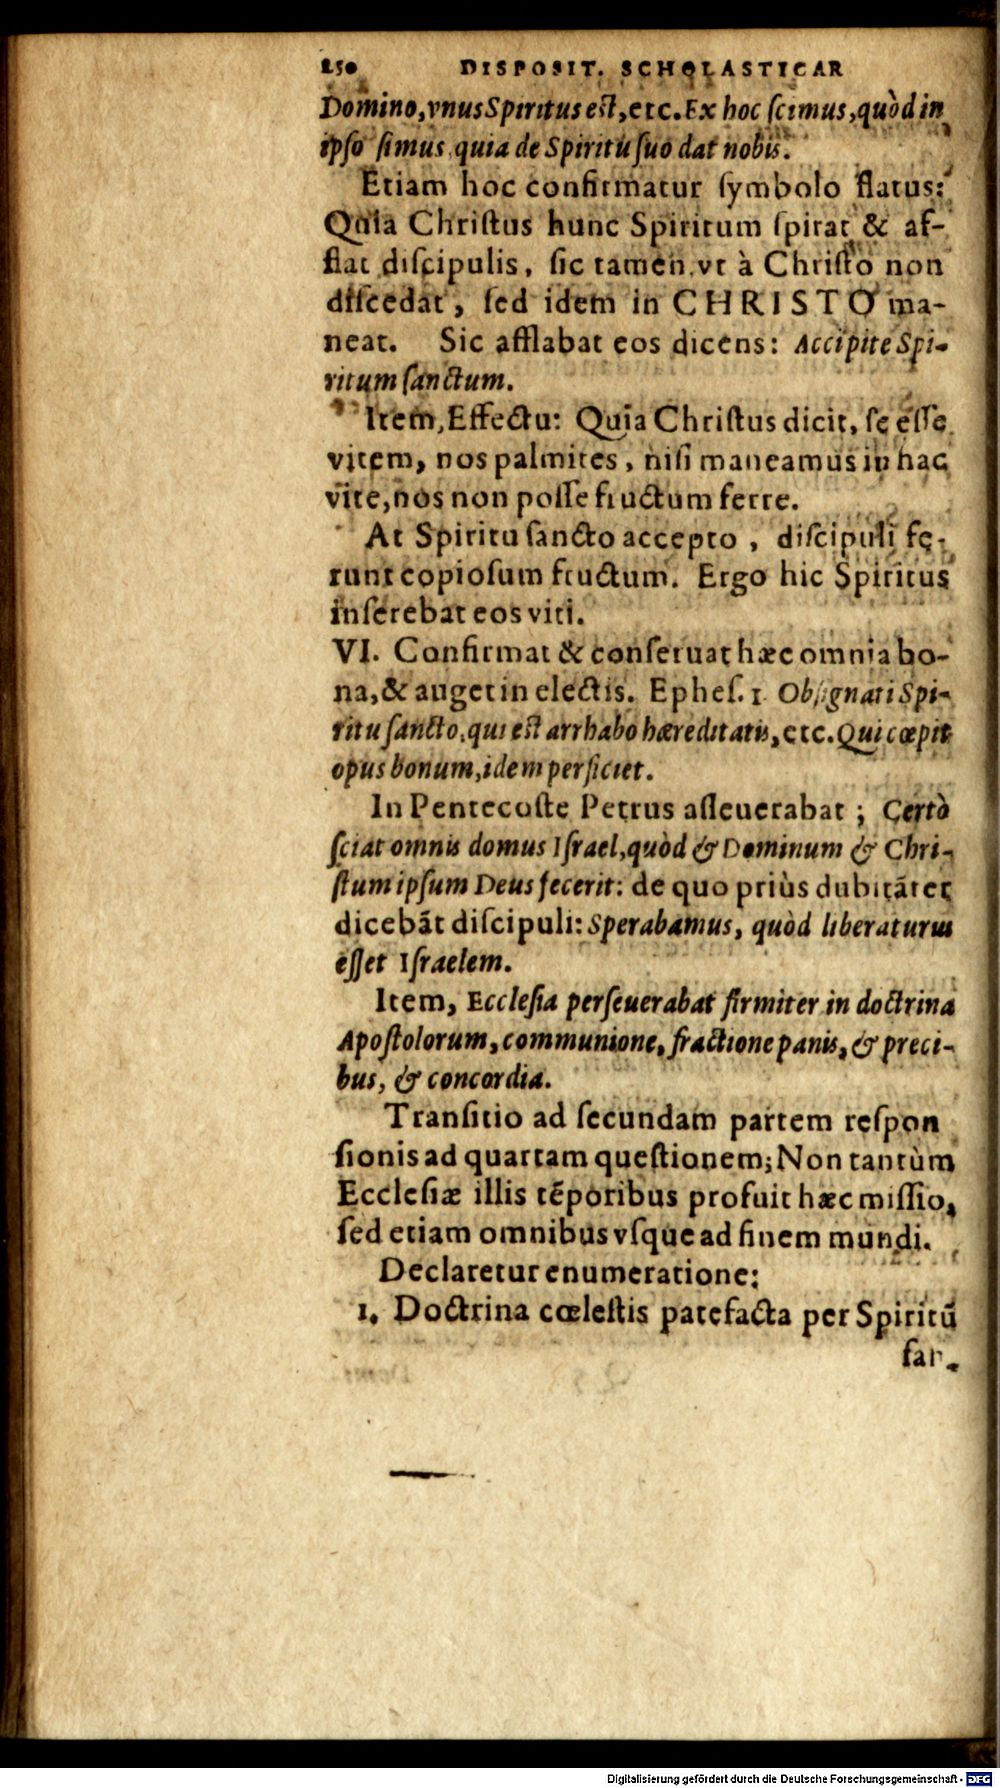 250 DISPOSIT. SCHOLASTICAR
Domino, vnus Spiritus est, etc. Ex hoc scimus, quòd in
ipso simus, quia de Spiritu suo dat nobis.
Etiam hoc confirmatur symbolo flatus:
Quia Christus hunc Spiritum spirat & af-
flat discipulis, sic tamen vt à Christo non
discedat, sed idem in CHRISTO ma-
neat. Sic afflabat eos dicens: Accipite Spi-
ritum sanctum.
Item, Effectu: Quia Christus dicit, se esse
vitem, nos palmites, nisi maneamus in hac
vite, nos non posse fructum ferre.
At Spiritu sancto accepto, discipuli fe-
runt copiosum fructum. Ergo hic Spiritus
inserebat eos viti.
VI. Confirmat & conseruat hæc omnia bo-
na, & auget in electis. Ephes. 1. Obsignati Spi-
ritu sancto, qui est arrhabo hæreditatis, etc. Qui cœpit
opus bonum, idem perficiet.
In Pentecoste Petrus asseuerabat; Certò
sciat omnis domus Israel, quòd & Dominum & Chri-
stum ipsum Deus fecerit: de quo priùs dubitãter
dicebãt discipuli: Sperabamus, quòd liberaturus
esset Israelem.
Item, Ecclesia perseuerabat firmiter in doctrina
Apostolorum, communione, fractione panis, & preci-
bus, & concordia.
Transitio ad secundam partem respon
sionis ad quartam questionem; Non tantùm
Ecclesiæ illis tẽporibus profuit hæc missio,
sed etiam omnibus vsque ad finem mundi.
Declaretur enumeratione:
1. Doctrina cœlestis patefacta per Spiritũ
san-
Digitalisierung gefördert durch die Deutsche Forschungsgemeinschaft - DFG